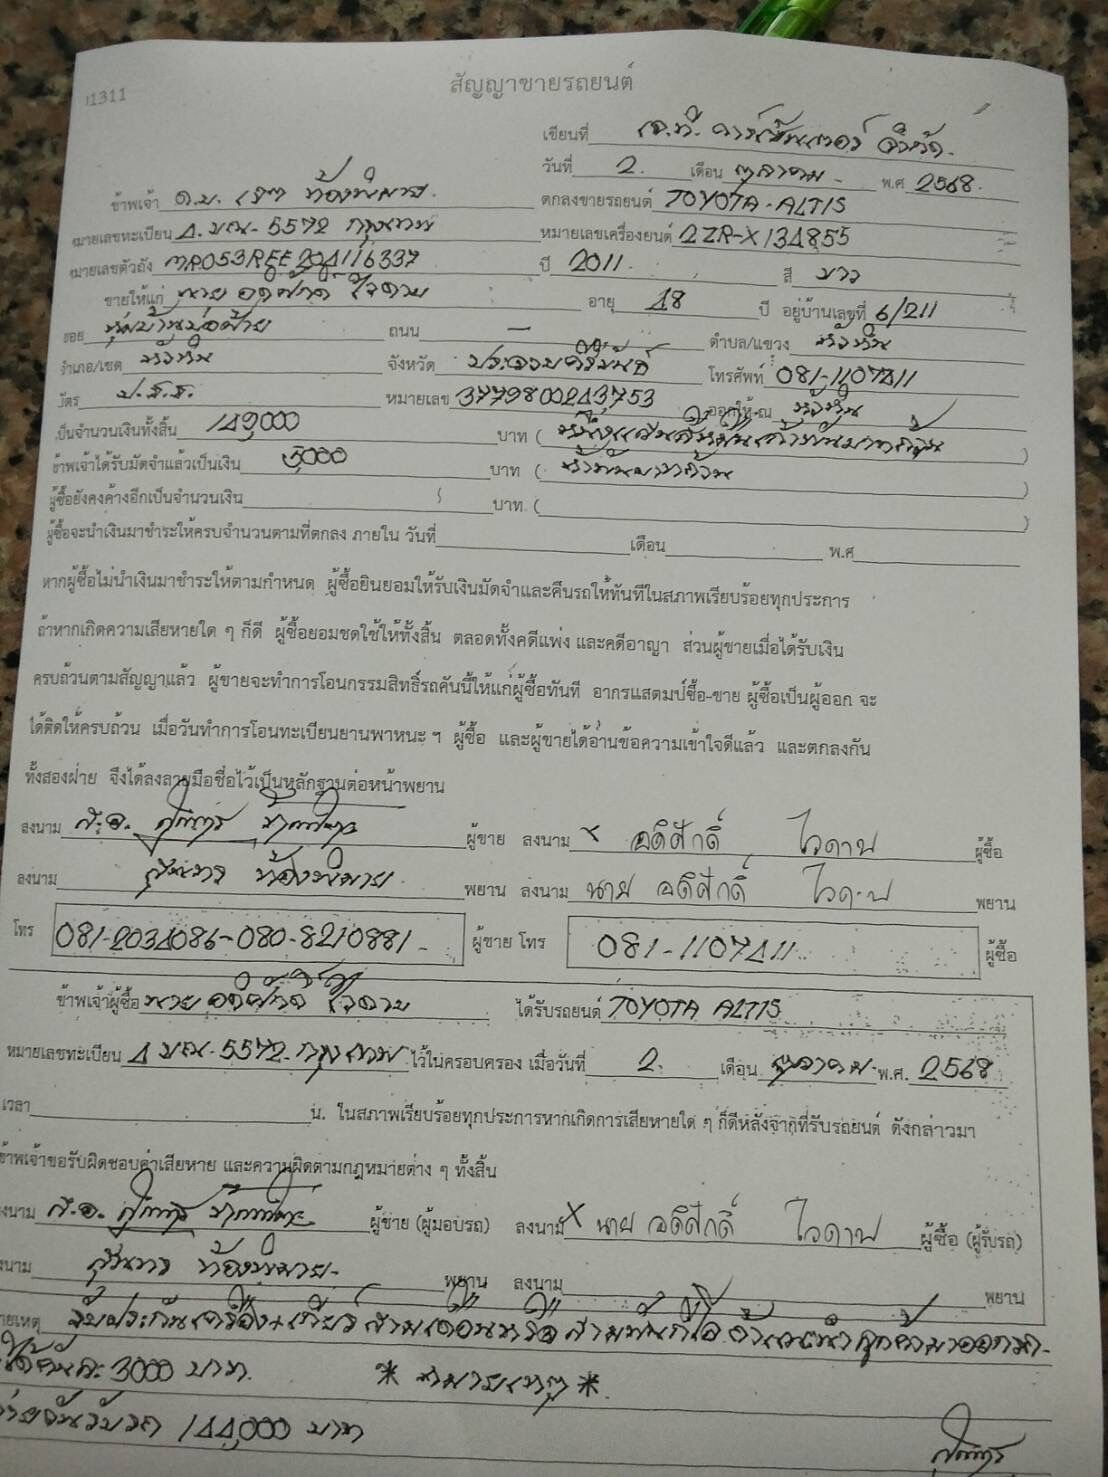 11311
สัญญาขายรถยนต์
เขียนที่ เจ.ที. คาร์เซ็นเตอร์ จำกัด.
วันที่ 2. เดือน ตุลาคม - พ.ศ 2568.
ข้าพเจ้า ท้องพิมาย. ตกลงขายรถยนต์ TOYOTA - ALTIS
หมายเลขทะเบียน 5572 กรุงเทพ หมายเลขเครื่องยนต์ 2ZR-X134855
หมายเลขตัวถัง MR053REE204116337 ปี 2011. สี ขาว
ขายให้แก่ นาย อดิศักดิ์ ไวดาบ อายุ 48 ปี อยู่บ้านเลขที่ 6/211
ซอย หมู่บ้านบ่อฝ้าย ถนน — ตำบล/แขวง หัวหิน
อำเภอ/เขต หัวหิน จังหวัด ประจวบคีรีขันธ์ โทรศัพท์ 081-1107411
บัตร ป.ช.ช. หมายเลข 3779800243753 ออกให้ ณ หัวหิน
เป็นจำนวนเงินทั้งสิ้น 149,000 บาท ( หนึ่งแสนสี่หมื่นเก้าพันบาทถ้วน )
ข้าพเจ้าได้รับมัดจำแล้วเป็นเงิน 5000 บาท ( ห้าพันบาทถ้วน )
ผู้ซื้อยังคงค้างอีกเป็นจำนวนเงิน บาท ( )
ผู้ซื้อจะนำเงินมาชำระให้ครบจำนวนตามที่ตกลง ภายใน วันที่ เดือน พ.ศ
หากผู้ซื้อไม่นำเงินมาชำระให้ตามกำหนด ผู้ซื้อยินยอมให้รับเงินมัดจำและคืนรถให้ทันทีในสภาพเรียบร้อยทุกประการ
ถ้าหากเกิดความเสียหายใด ๆ ก็ดี ผู้ซื้อยอมชดใช้ให้ทั้งสิ้น ตลอดทั้งคดีแพ่ง และคดีอาญา ส่วนผู้ขายเมื่อได้รับเงิน
ครบถ้วนตามสัญญาแล้ว ผู้ขายจะทำการโอนกรรมสิทธิ์รถคันนี้ให้แก่ผู้ซื้อทันที อากรแสตมป์ซื้อ-ขาย ผู้ซื้อเป็นผู้ออก จะ
ได้ติดให้ครบถ้วน เมื่อวันทำการโอนทะเบียนยานพาหนะ ฯ ผู้ซื้อ และผู้ขายได้อ่านข้อความเข้าใจดีแล้ว และตกลงกัน
ทั้งสองฝ่าย จึงได้ลงลายมือชื่อไว้เป็นหลักฐานต่อหน้าพยาน
ลงนาม ผู้ขาย ลงนาม x อดิศักดิ์ ไวดาบ ผู้ซื้อ
ลงนาม ท้องพิมาย พยาน ลงนาม นาย อดิศักดิ์ ไวดาบ พยาน
โทร 081-2034086-080-8210881- ผู้ขาย โทร 081-1107411 ผู้ซื้อ
ข้าพเจ้าผู้ซื้อ นาย อดิศักดิ์ ไวดาบ ได้รับรถยนต์ TOYOTA ALTIS
หมายเลขทะเบียน 5572 กรุงเทพ ไว้ในครอบครอง เมื่อวันที่ 2. เดือน ตุลาคม. พ.ศ. 2568
เวลา น. ในสภาพเรียบร้อยทุกประการหากเกิดการเสียหายใด ๆ ก็ดีหลังจากที่รับรถยนต์ ดังกล่าวมา
ข้าพเจ้าขอรับผิดชอบค่าเสียหาย และความผิดตามกฎหมายต่าง ๆ ทั้งสิ้น
ลงนาม ผู้ขาย (ผู้มอบรถ) ลงนาม X นาย อดิศักดิ์ ไวดาบ ผู้ซื้อ (ผู้รับรถ)
ลงนาม ท้องพิมาย- พยาน ลงนาม พยาน
หมายเหตุ รับประกันเครื่อง+เกียร์ สามเดือนหรือ สามพันกิโล ถ้าแนะนำลูกค้ามาออกรถ-
ได้คันละ 3000 บาท. * หมายเหตุ *
144,000 บาท